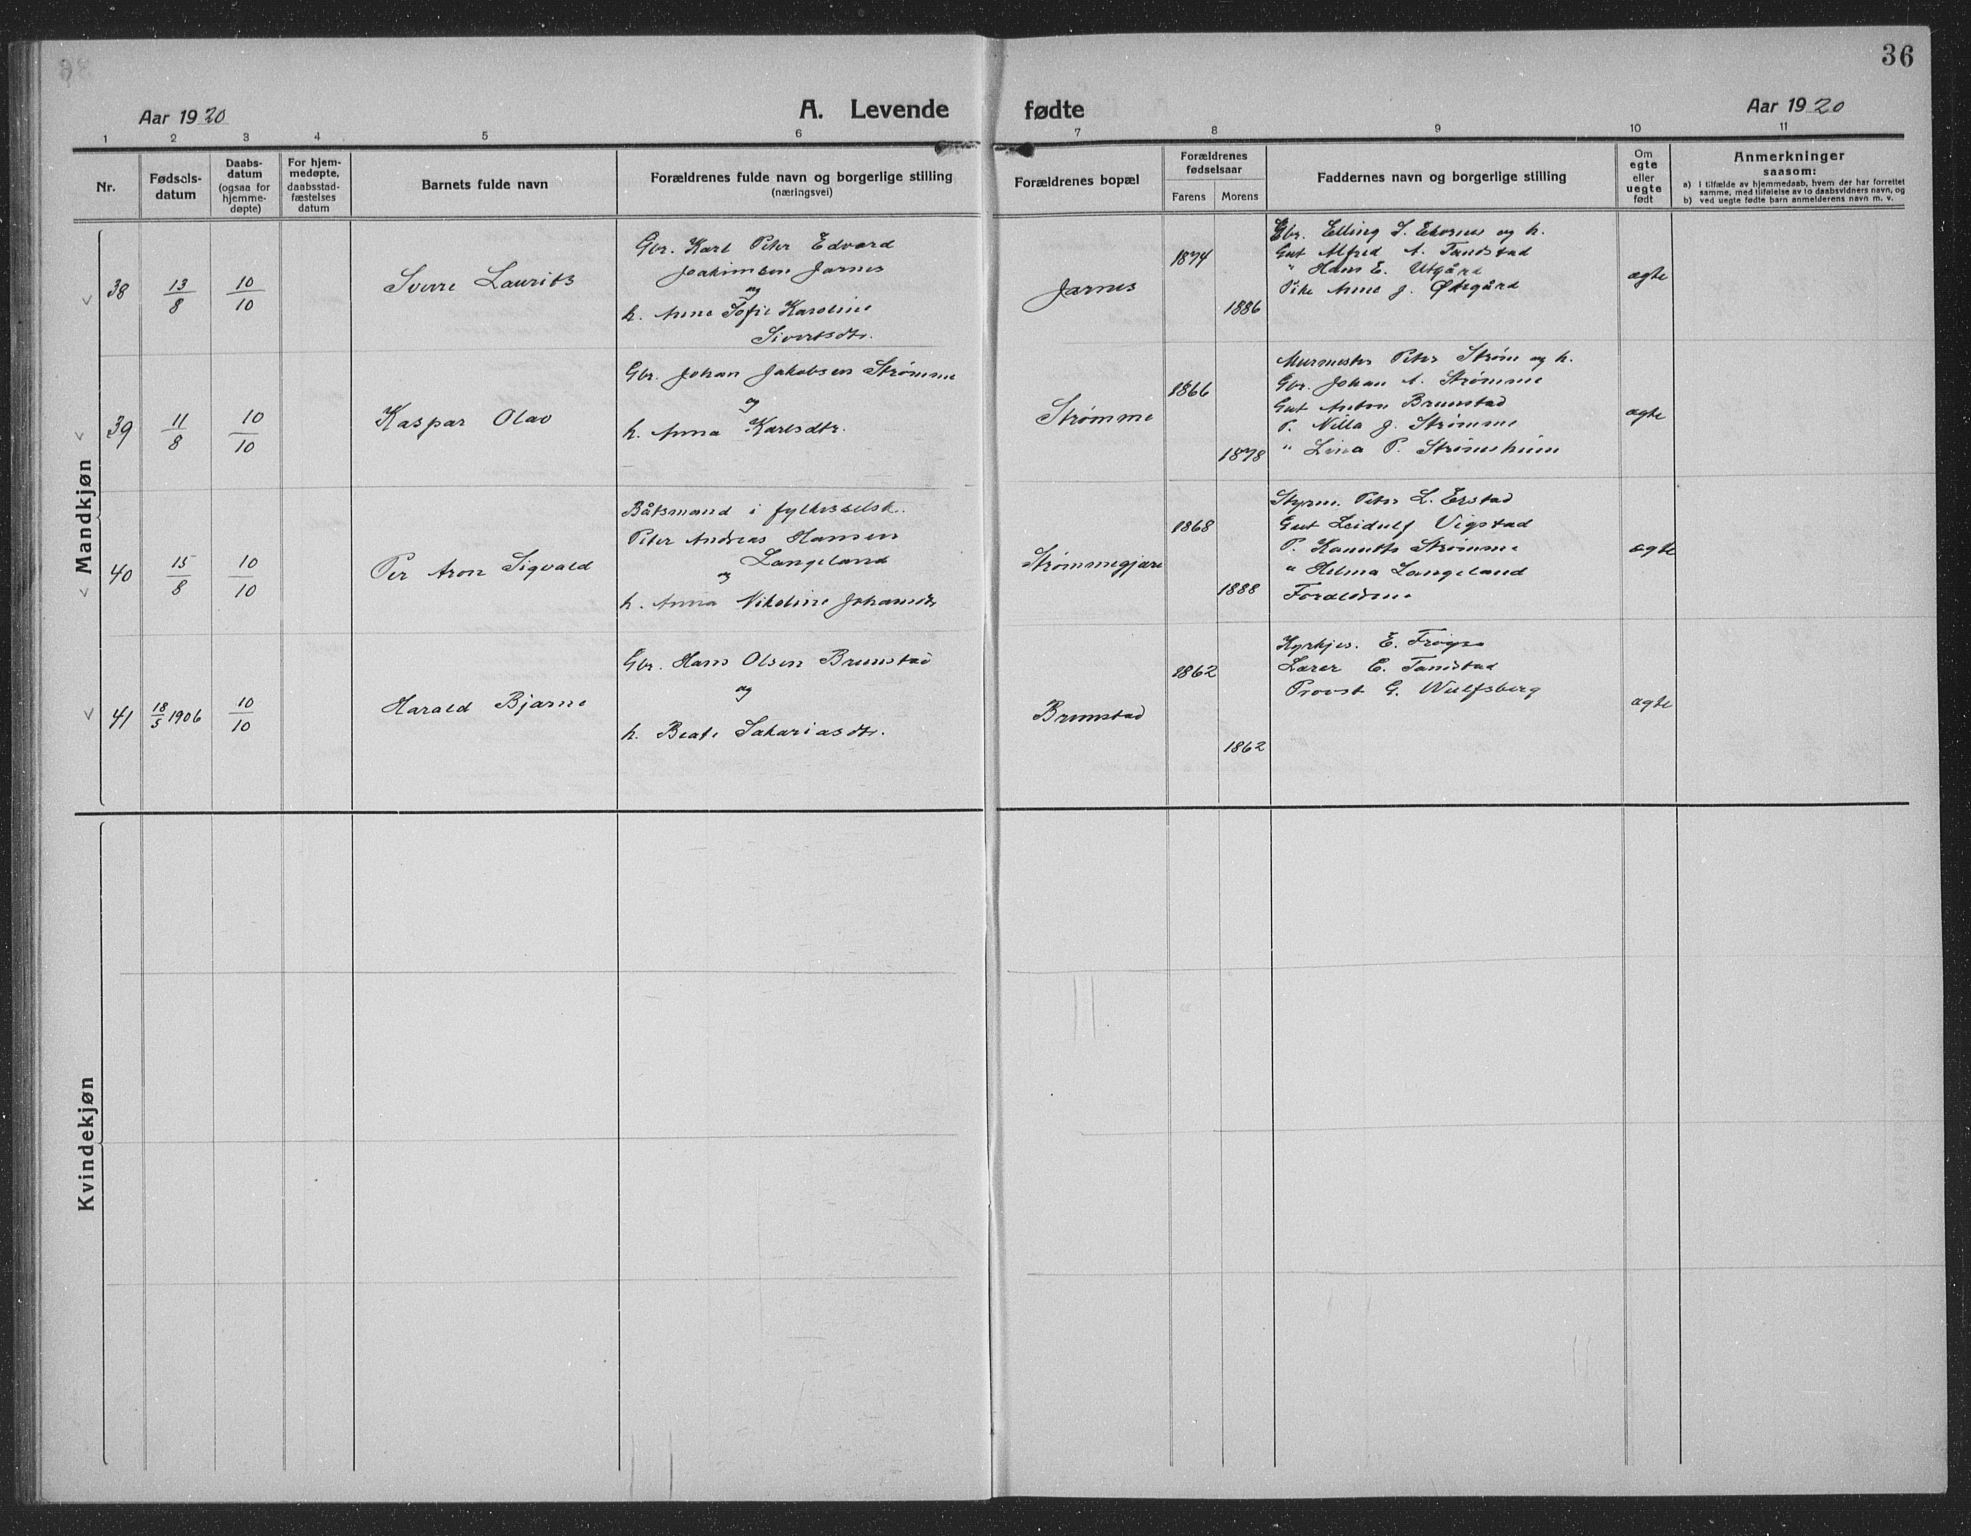 36
Aar 1920
A. Levende fødte
Aar 1920
1 2 3 4 5 6 7 8 9 10 11
Nr.
Fødsels-
datum
Daabs-
datum
(ogsaa for
hjemme-
døpte)
For hjem-
medøpte,
daabsstad-
fæstelses
datum
Barnets fulde navn
Forældrenes fulde navn og borgerlige stilling
(næringsvei)
Forældrenes bopæl
Forældrenes
fødselsaar
Farens Morens
Faddernes navn og borgerlige stilling
Om
egte
eller
uegte
født
Anmerkninger
saasom:
a) i tilfælde av hjemmedaab, hvem der har forrettet
samme, med tilføielse av to daabsvidners navn, og
b) ved uegte fødte barn anmelderens navn m. v.
Mandkjøn
38
13/8
10/10
Sverre Laurits
Gbr. Karl Peter Edvard
Joakimsen Jarnes
og
h. Anne Sofie Karoline
Sivertsdtr.
Jarnes
1874
1886
Gbr. Elling S. Ekornes og h.
Gut Alfred A. Tandstad
" Hans E. Utgård
Pike Anne J. Ødegård
ægte
39
11/8
10/10
Kaspar Olav
Gbr. Johan Jakobsen Strømme
og
h. Anna Karlsdtr.
Strømme
1866
1878
Murmester Peter Strøm og h.
Gbr. Johan A. Strømme
Gut Anton Brunstad
P. Nilla J. Strømme
" Lina P. Strømsheim
ægte
40
15/8
10/10
Per Aron Sigvald
Båtsmand i fylkesselsk.
Peter Andreas Hansen
Langeland
og
h. Anna Nikoline Johansdtr
Strømmegjære
1868
1888
Styrm. Peter L. Erstad
Gut Leidulf Vigstad
P. Strømme
" Helma Langeland
Foraldrene
ægte
41
18/5 1906
10/10
Harald Bjarne
Gbr. Hans Olsen Brunstad
og
h. Beate Sakariasdtr.
Brunstad
1862
1862
Kyrkjes. E. Frøysa
Lærer C. Tandstad
Provst G. Wulfsberg
ægte
Kvindekjøn